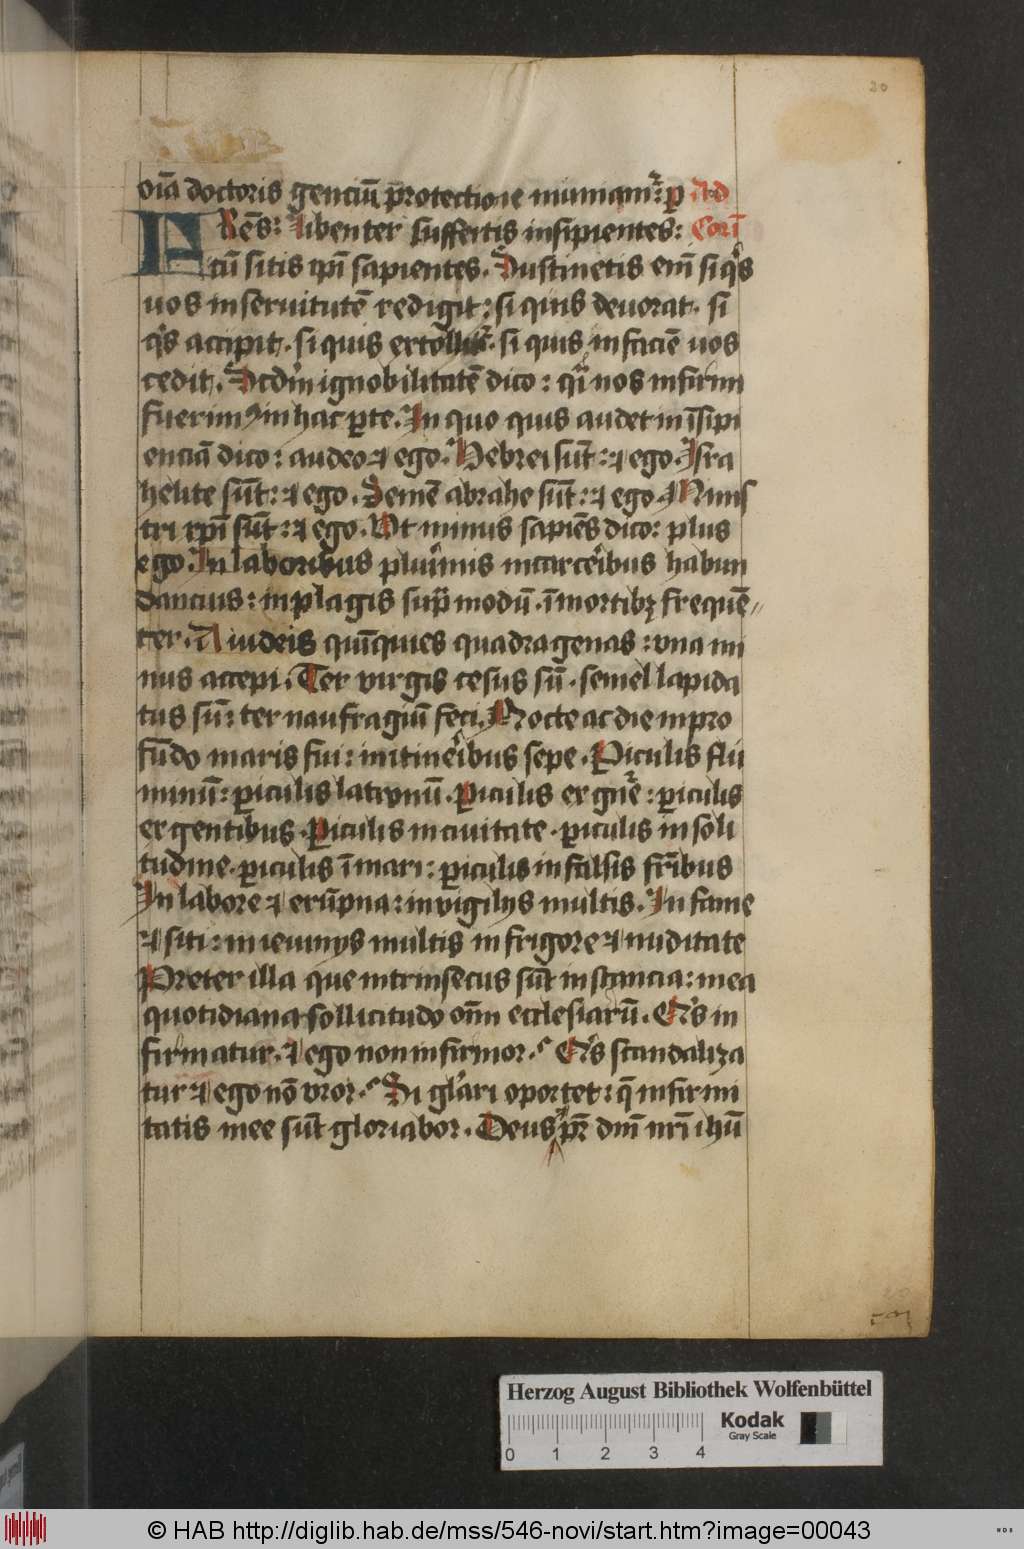 20
oīa doctoris genciū protectione muniamur: p Ad
FRēs: libenter suffertis insipientes: Cori
cū sitis ipī sapientes. Sustinetis enī si qͥs
uos in seruitutē redigit: si quis deuorat. si
qͥs accipit. si quis extollitur. si quis in faciē uos
cedit. Scdm ignobilitatē dico: qͣi nos infirmi
fuerimꝯ in hac ꝑte. In quo quis audet in īsipi
enciā dico: audeo ⁊ ego. Hebrei sūt: ⁊ ego. Isra
helite sūt: ⁊ ego. Semē abrahe sūt: ⁊ ego. Minis
tri xpī sūt: ⁊ ego. Vt minus sapiēs dico: plus
ego. In laboribus plurimis in carceribus habun
dancius: in plagis supͣ modū. ī mortibꝫ frequē〃
ter. A iudeis quīquies quadragenas: vna mi
nus accepi. Ter virgis cesus sū. semel lapida
tus sū: ter naufragiū feci. Nocte ac die in pro
fūdo maris fui: in itineribus sepe. Piculis flu
minū: ꝑiculis latronū. Piculis ex gn̄e: ꝑiculis
ex gentibus. Piculis in ciuitate. ꝑiculis in soli
tudine. ꝑiculis ī mari: ꝑiculis in falsis frībus
In labore ⁊ erūpna: in vigilijs multis. In fame
⁊ siti: in ieiunijs multis in frigore ⁊ nuditate
Preter illa que intrinsecus sūt instancia: mea
quotidiana sollicitudo om̄i ecclesiarū. Qͥs in
firmatur. ⁊ ego non infirmor. Qͥs scandaliza
tur ⁊ ego nō vror. Si glͦari oportet: q̄ infirmi
tatis mee sūt gloriabor. Deus ⁊ pr̄ dn̄i nr̄i ihū
Herzog August Bibliothek Wolfenbüttel
Kodak
Gray Scale
0 1 2 3 4
© HAB http://diglib.hab.de/mss/546-novi/start.htm?image=00043